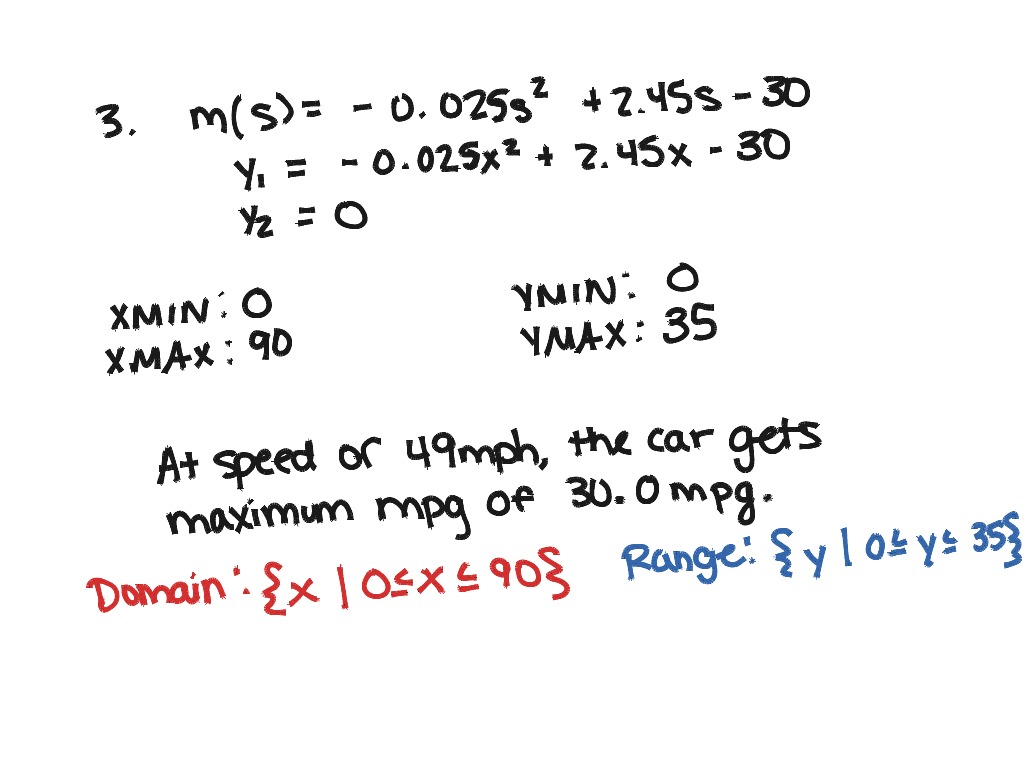 3. m(s) = - 0.025s² + 2.45s - 30
y₁ = - 0.025x² + 2.45x - 30
y₂ = 0
XMIN: 0
XMAX: 90
YMIN: 0
YMAX: 35
At speed or 49mph, the car gets
maximum mpg of 30.0 mpg.
Domain: {x | 0 ≤ x ≤ 90}
Range: {y | 0 ≤ y ≤ 35}